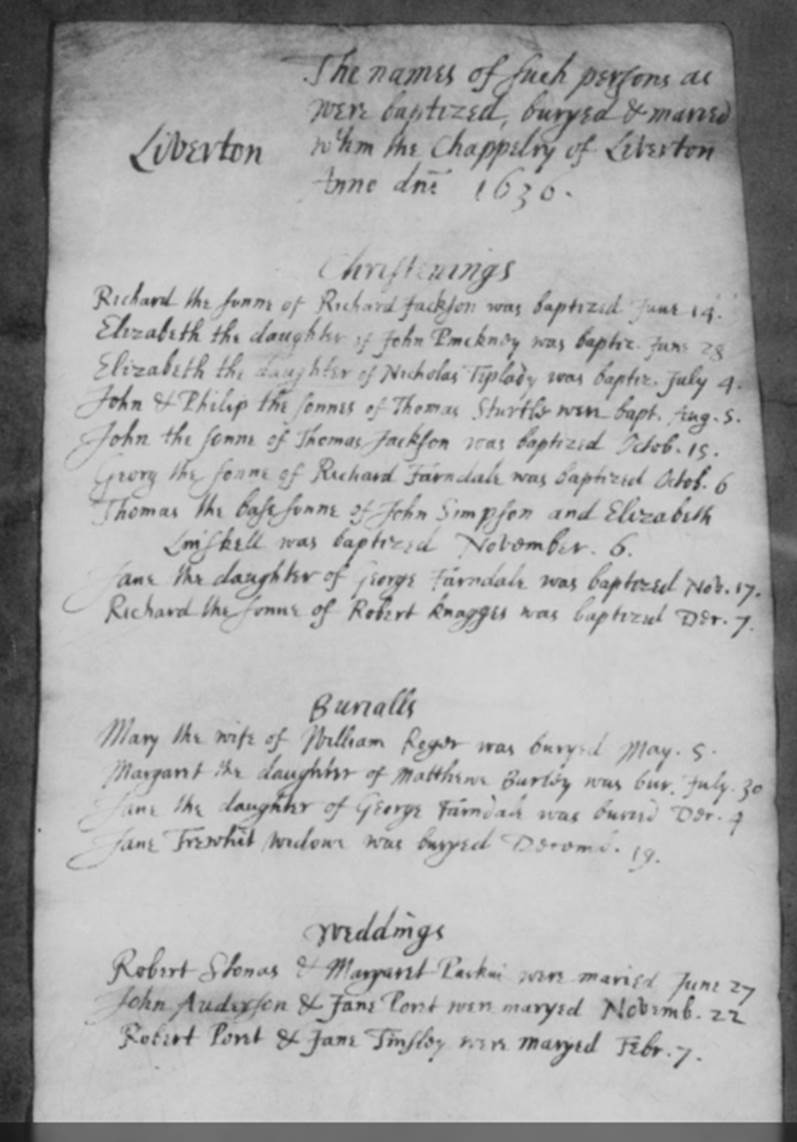 The names of such persons as
Liverton were baptized, buryed & maried
wthin the Chappelry of Liverton
Anno dni 1636.
Christenings
Richard the sonne of Richard Jackson was baptized June 14.
Elizabeth the daughter of John Pinckney was baptiz. June 28
Elizabeth the daughter of Nicholas Tiplady was baptiz. July 4.
John & Philip the sonnes of Thomas were bapt. Aug. 5.
John the sonne of Thomas Jackson was baptized Octob. 15.
Georg the sonne of Richard Farndale was baptized Octob. 6
Thomas the base sonne of John Simpson and Elizabeth
Linskell was baptized November. 6.
Jane the daughter of George Farndale was baptized Nov. 17.
Richard the sonne of Robert Knagges was baptized Dec. 7.
Burialls
Mary the wife of William Roger was buryed May. 5.
Margaret the daughter of Matthewe Burley was bur. July. 30
Jane the daughter of George Farndale was buried Dec. 4
Jane Trewhit widowe was buryed Decemb. 19.
Weddings
Robert Stonas & Margaret were maried June 27
John Anderson & Jane Poret were maryed Novemb. 22
Robert Poret & Jane Tinsley were maryed Febr. 7.